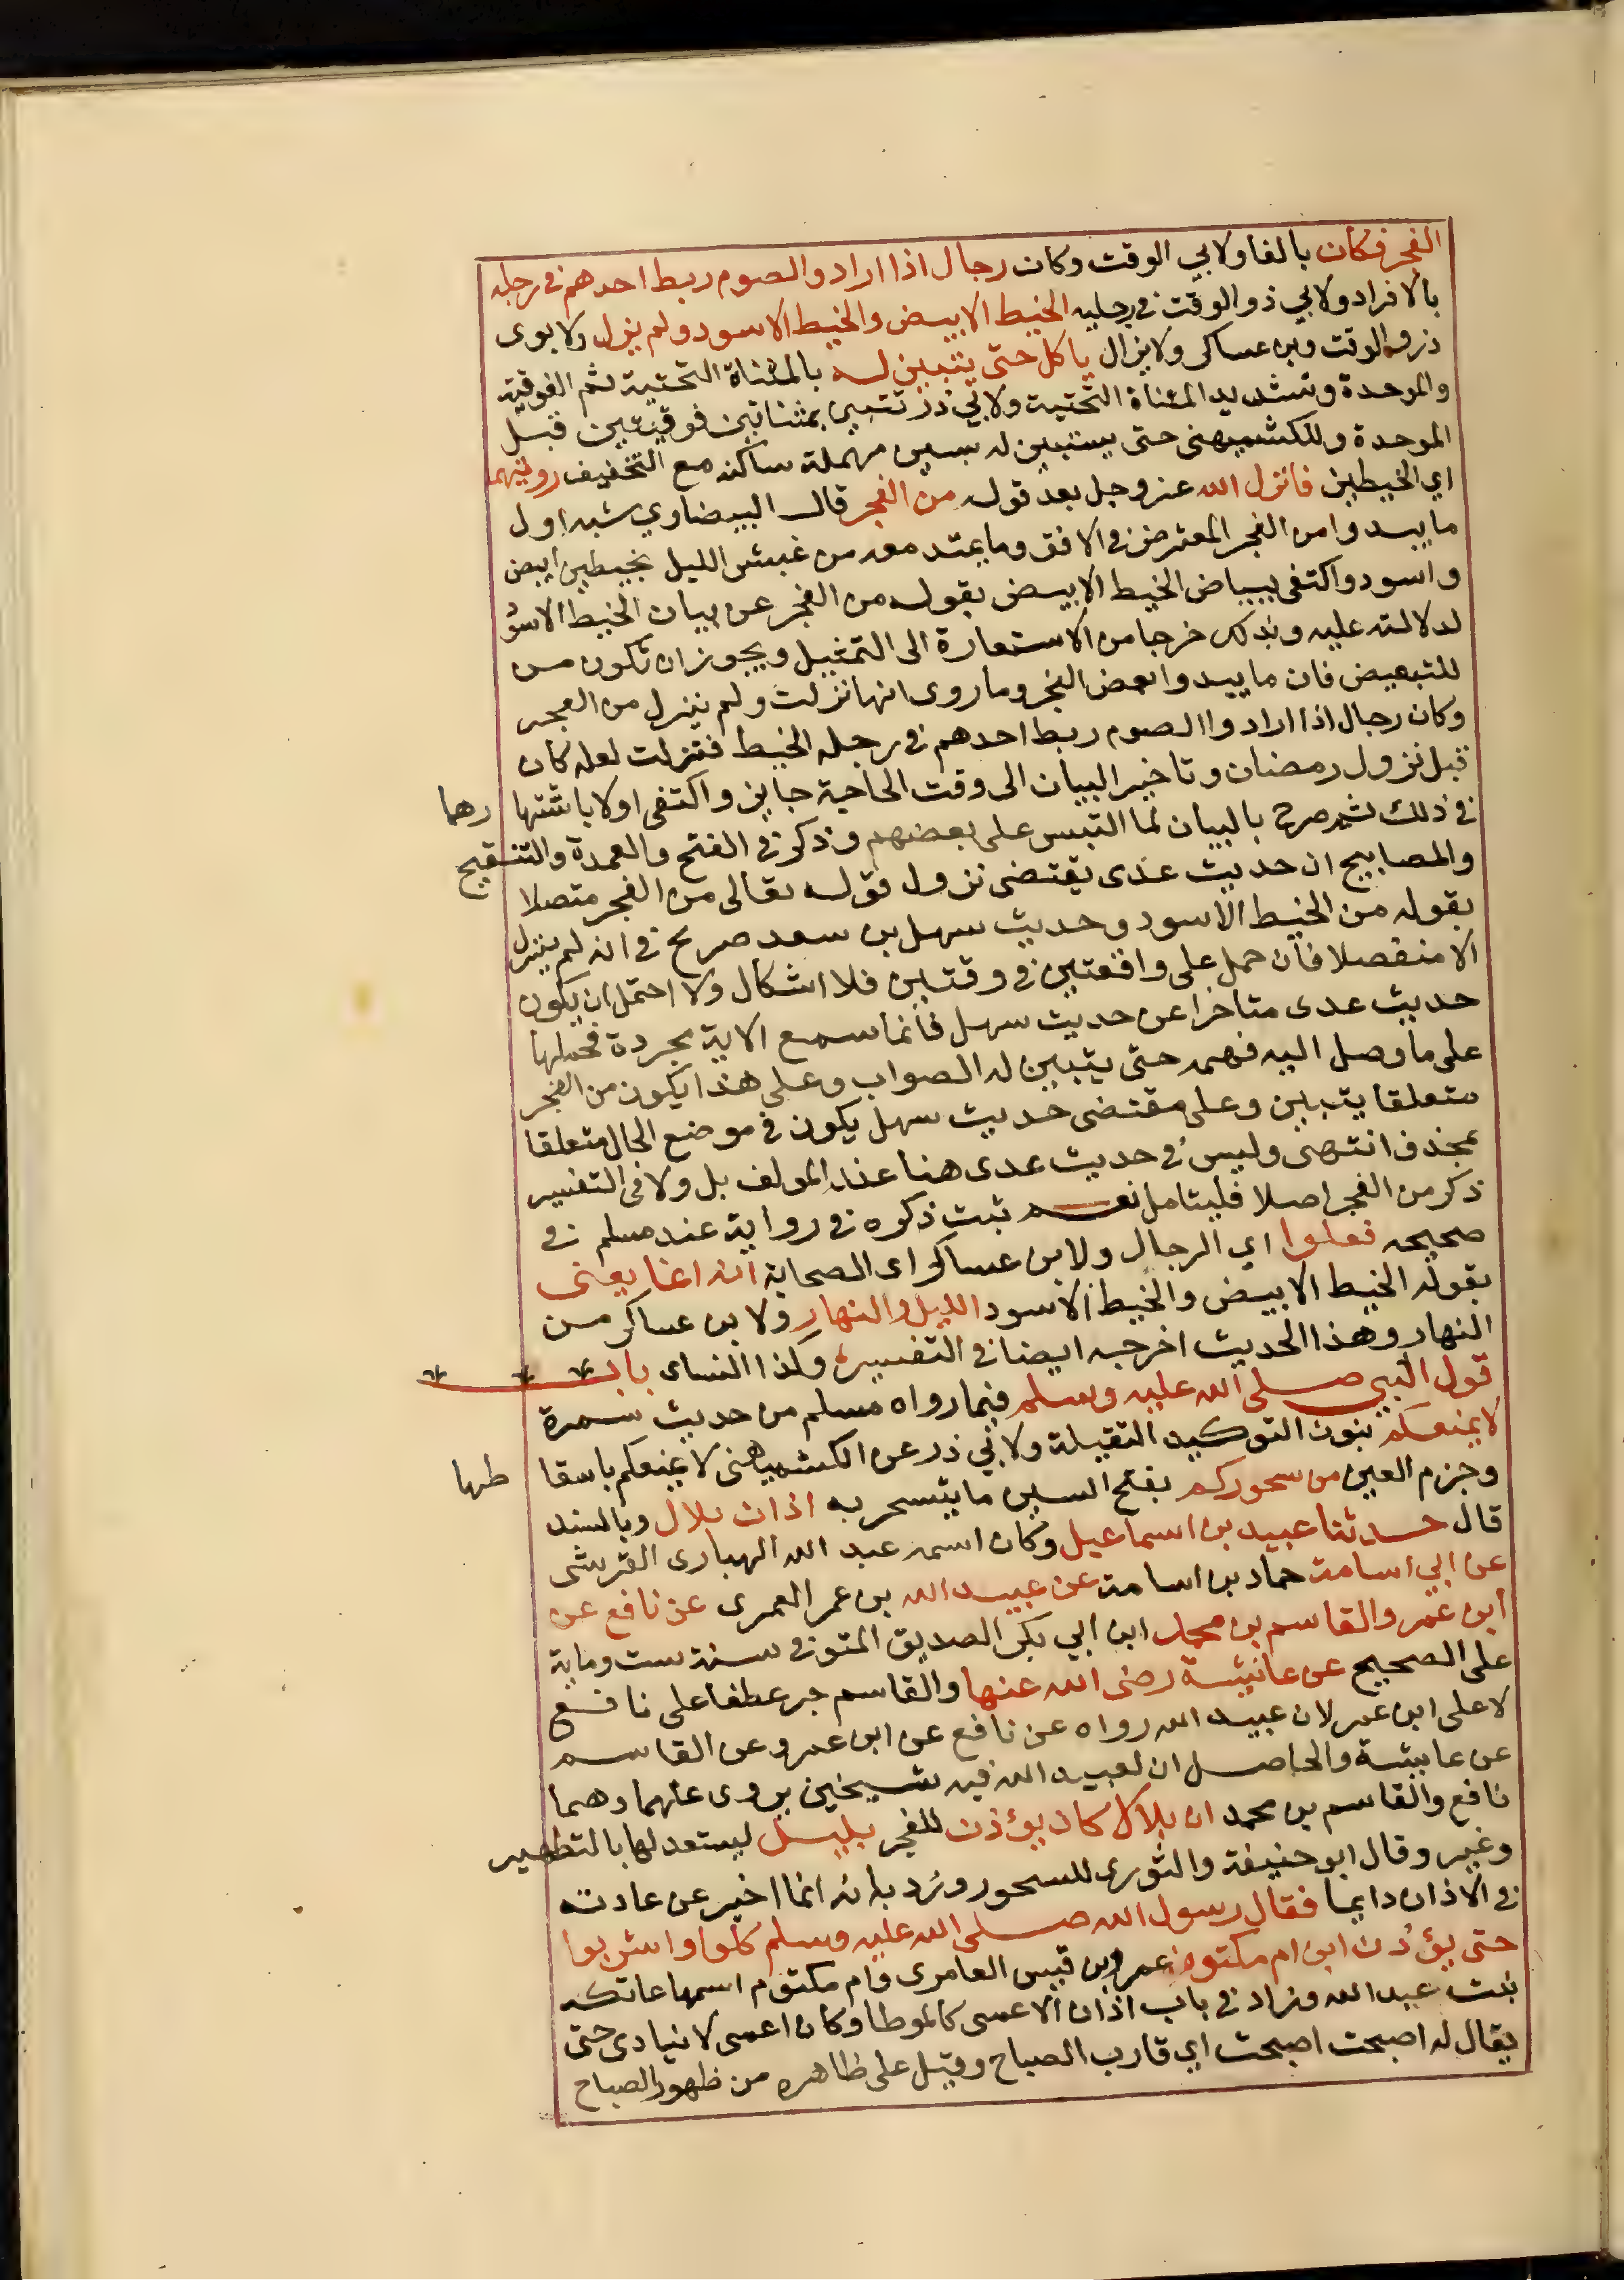 الفجر فكان بالفا ولابي الوقت وكان رجال اذا ارادوا الصوم ربط احدهم في رجله
بالافراد ولابي ذر والوقت في رجليه الخيط الابيض والخيط الاسود ولم يزل ولابوي
ذر والوقت وبن عساكر ولايزال ياكل حتى يتبين له بالمثناة التحتية ثم الفوقية
والموحدة وتشديد المثناة التحتية ولابي ذر تتبين بمثناتين فوقيتين قبل
الموحدة وللكشميهني حتى يستبين له بسين مهملة ساكنه مع التخفيف رويتهما
اي الخيطين فانزل الله عز وجل بعد قوله من الفجر قال البيضاوي شبه اول
ما يبدوا من الفجر المعترض في الافق وما يمتد معه من غبش الليل بخيطين ابيض
واسود واكتفى ببياض الخيط الابيض بقوله من الفجر عن بيان الخيط الاسود
لدلالته عليه وبذلك خرجا من الاستعارة الى التمثيل ويجوز ان تكون من
للتبعيض فان ما يبدوا بعض الفجر وما روى انها نزلت ولم ينزل من الفجر
وكان رجال اذا ارادوا الصوم ربط احدهم في رجله الخيط فنزلت لعله كان
قبل نزول رمضان وتاخير البيان الى وقت الحاجة جايز واكتفى اولا باشتها رهما
في ذلك ثم صرح بالبيان لما التبس على بعضهم وذكر في الفتح والعمدة والتنقيح
والمصابيح ان حديث عدى يقتضى نزول قوله تعالى من الفجر متصلا
بقوله من الخيط الاسود وحديث سهل بن سعد صريح في انه لم ينزل
الا منفصلا فان حمل على واقعتين في وقتين فلا اشكال ولا احتمل ان يكون
حديث عدى متاخرا عن حديث سهل فانما سمع الاية مجردة فحملها
على ما وصل اليه فهمه حتى يتبين له الصواب وعلى هذا يكون من الفجر
متعلقا يتبين وعلى مقتضى حديث سهل يكون في موضع الحال متعلقا
بمحذوف انتهى وليس في حديث عدى هنا عند المولف بل ولا في التفسير
ذكر من الفجر اصلا فليتامل نعم ثبت ذكره في رواية عند مسلم في
صحيحه فعلموا اي الرجال ولابن عساكر اى الصحابة انه انما يعنى
بقوله الخيط الابيض والخيط الاسود الليل والنهار ولابن عساكر من
النهار وهذا الحديث اخرجه ايضا في التفسير وكذا النساى باب
قول النبي صلى الله عليه وسلم فيما رواه مسلم من حديث سمرة
لا يمنعكم بنون التوكيد الثقيلة ولابي ذر عن الكشميهني لا يمنعكم باسقا طها
وجزم العين من سحوركم بفتح السين ما يتسحر به اذان بلال وبالسند
قال حدثنا عبيد بن اسماعيل وكان اسمه عبد الله الهبارى القرشى
عن ابي اسامة حماد بن اسامة عن عبيد الله بن عمر العمرى عن نافع عن
ابن عمر والقاسم بن محمد ابن ابي بكر الصديق المتوفى سنة ست وماية
على الصحيح عن عائيشة رضى الله عنها والقاسم جر عطفا على نافع
لا على ابن عمر لان عبيد الله رواه عن نافع عن ابن عمر وعن القاسم
عن عايشة والحاصل ان لعبيد الله فيه شيخين يروى عنهما وهما
نافع والقاسم بن محمد ان بلالا كان يؤذن للفجر بليل ليستعد لها بالتطهير
وغير وقال ابو حنيفة والثورى للسحور ورد بانه انما اخبر عن عادته
في الاذان دايما فقال رسول الله صلى الله عليه وسلم كلوا واشربوا
حتى يؤذن ابن ام مكتوم عمرو بن قيس العامرى وام مكتوم اسمها عاتكه
بنت عبد الله وزاد في باب اذان الاعمى كالموطا وكان اعمى لا ينادى حتى
يقال له اصبحت اصبحت اي قارب الصباح وقيل على ظاهره من ظهور الصباح